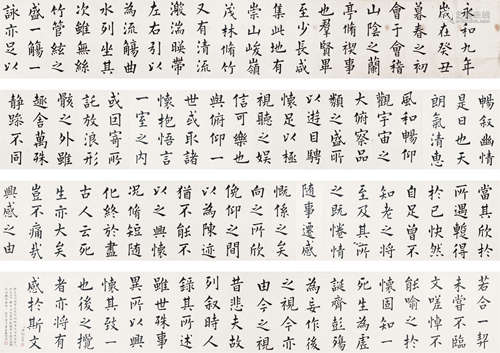 永和九年
歲在癸丑
暮春之初
會于會稽
山陰之蘭
亭脩禊事
也羣賢畢
至少長咸
集此地有
崇山峻嶺
茂林脩竹
又有清流
激湍暎帶
左右引以
為流觴曲
水列坐其
次雖無絲
竹管絃之
盛一觴一
詠亦足以
暢叙幽情
是日也天
朗氣清惠
風和暢仰
觀宇宙之
大俯察品
類之盛所
以遊目騁
懷足以極
視聽之娛
信可樂也
與俯仰一
世或取諸
懷抱悟言
一室之内
或因寄所
託放浪形
骸之外雖
趣舍萬殊
静躁不同
當其欣於
所遇暫得
於己快然
自足曾不
知老之將
至及其所
之既惓情
隨事遷感
慨係之矣
向之所欣
俛仰之間
以為陳迹
猶不能不
以之興懷
況脩短隨
化終於盡
古人云死
生亦大矣
豈不痛哉
興感之由
若合一契
未嘗不臨
文嗟悼不
能喻之於
懷固知一
死生為虛
誕齊彭殤
為妄作後
之視今亦
由今之視
昔悲夫故
列叙時人
錄其所述
雖世殊事
異所以興
懷其致一
也後之攬
者亦將有
感於斯文